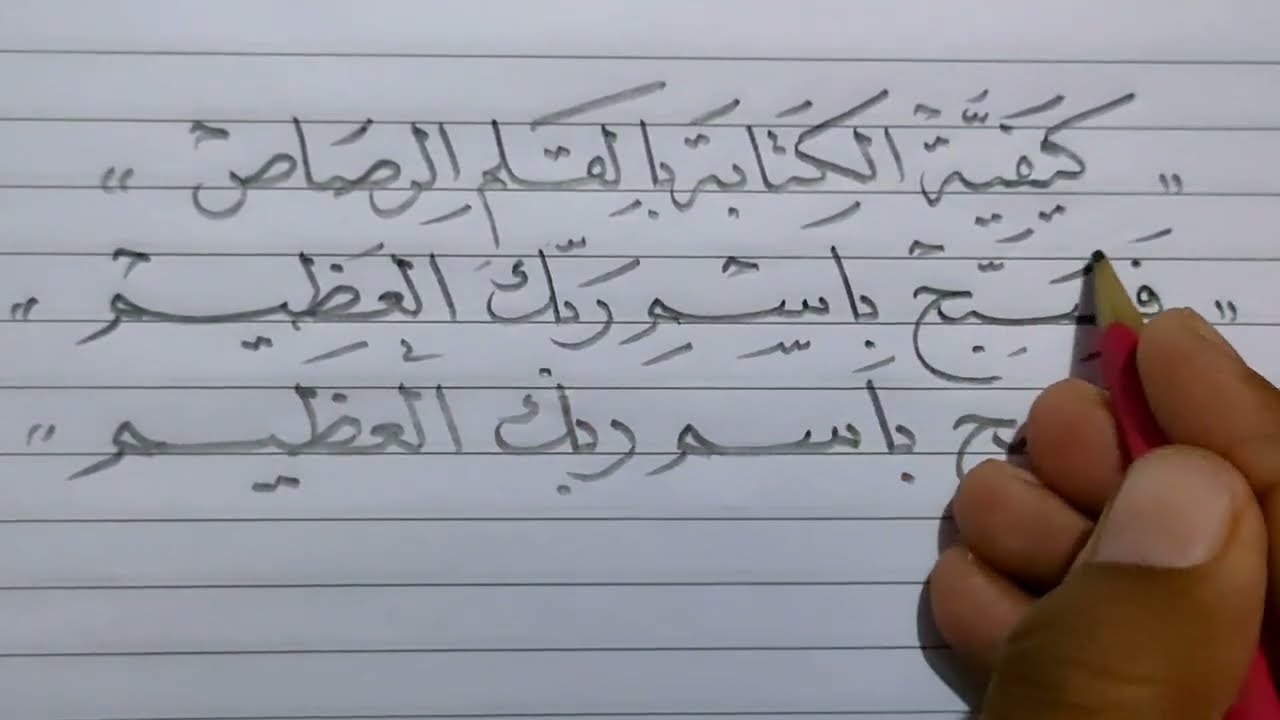 " كَيَفَيَّةْ الكِتَابَةَ بالِقَلَمِ الِرصَاصْ "
" فَسَبِّحْ بِاسِْمِ رَبِّكَ الْعَظِيمْ "
ح باسم ربك العظيم "